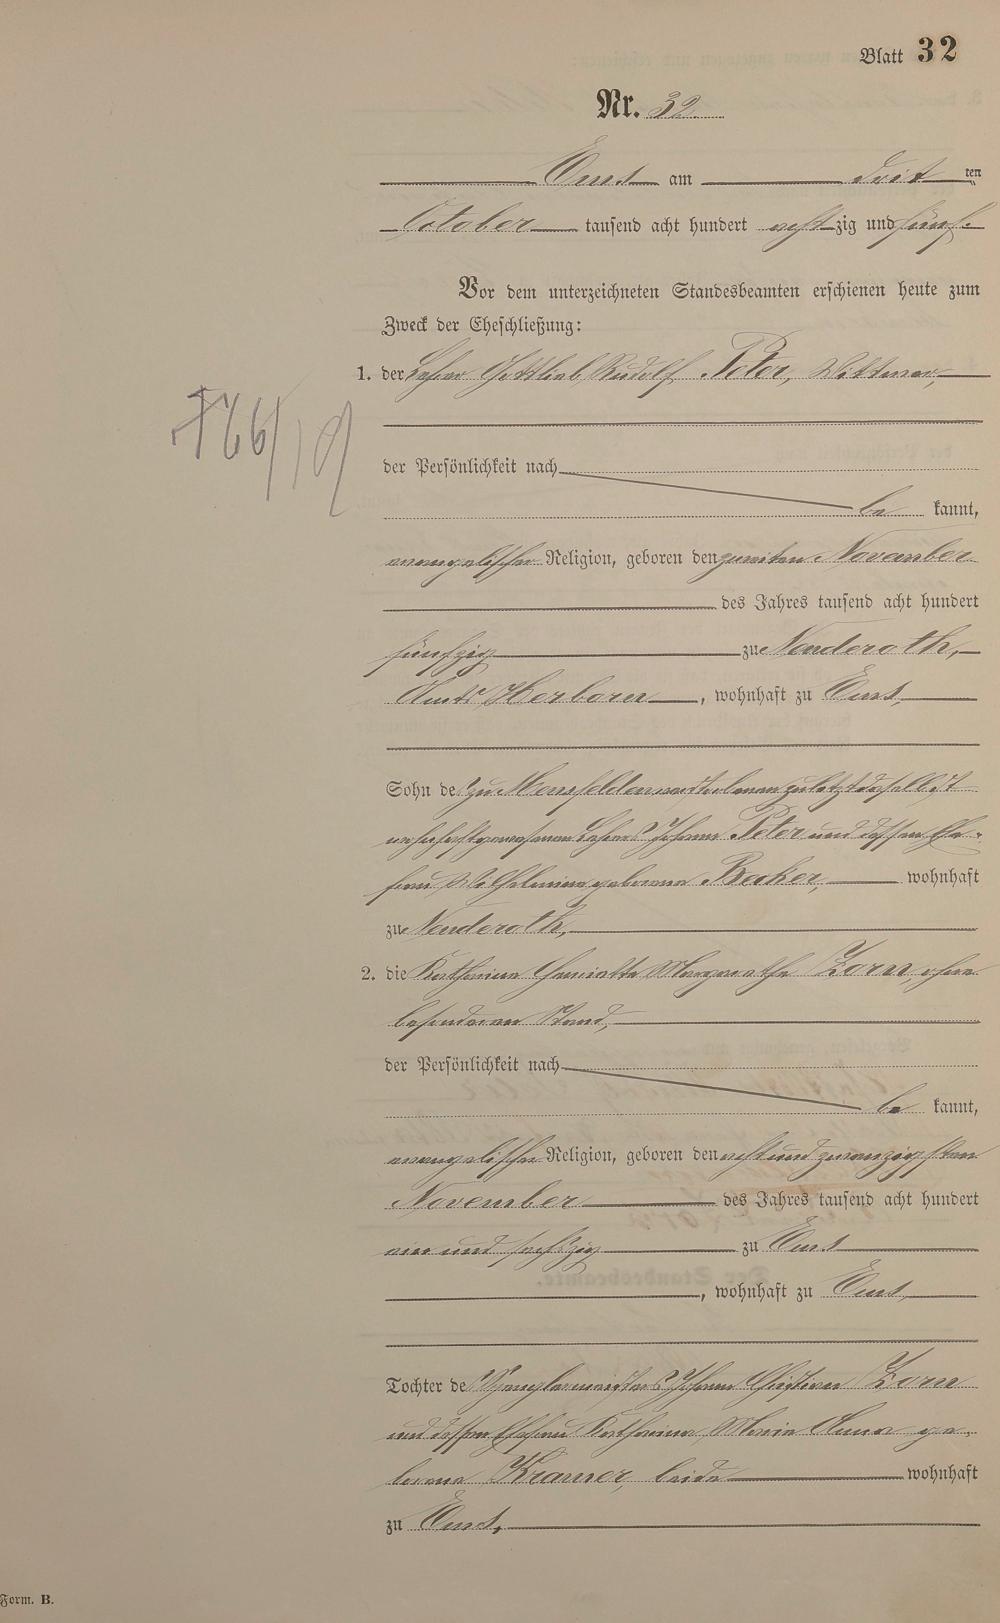 Blatt 32
Nr. 32.
Ems am dritten
October tausend acht hundert achtzig und fünf.
Vor dem unterzeichneten Standesbeamten erschienen heute zum
Zweck der Eheschließung:
1. der Lehrer Gottlieb Rudolf Peter, Wittwer,
der Persönlichkeit nach
be kannt,
evangelischer Religion, geboren den zweiten November
des Jahres tausend acht hundert
fünfzig zu Nenderoth,
Amts Herborn, wohnhaft zu Ems,
Sohn des zu Mensfelden verstorbenen zuletzt daselbst
wohnhaft gewesenen Lehrers Johann Peter und dessen Ehe-
frau Wilhelmine geborene Becker, wohnhaft
zu Nenderoth,
2. die Katharina Henriette Margarethe Zorn, ohne
besonderen Stand,
der Persönlichkeit nach
be kannt,
evangelischer Religion, geboren den achtundzwanzigsten
November des Jahres tausend acht hundert
ein und sechszig zu Ems
, wohnhaft zu Ems,
Tochter des Spenglermeisters Johann Christian Zorn
und dessen Ehefrau Katharina Maria Anna ge-
borene Kramer, beide wohnhaft
zu Ems,
Form. B.